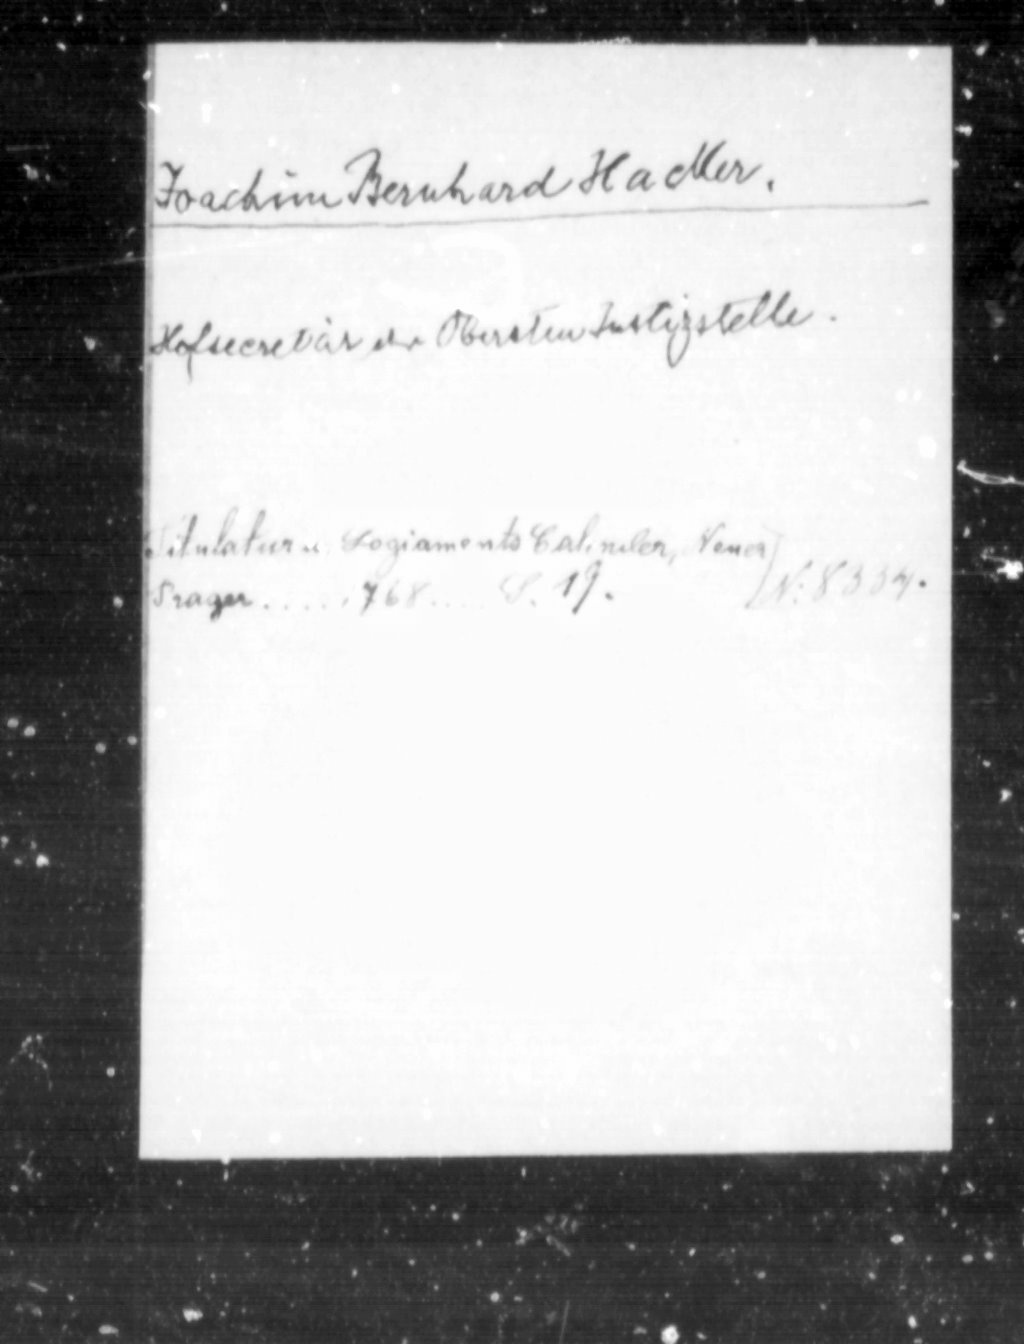 Joachim Bernhard Hackler.
Hofsecretär der Obersten Justizstelle.
Titulatur u. Logiaments Calender, Neuer
Prager ..... 1768 .... S. 19. N: 8334.